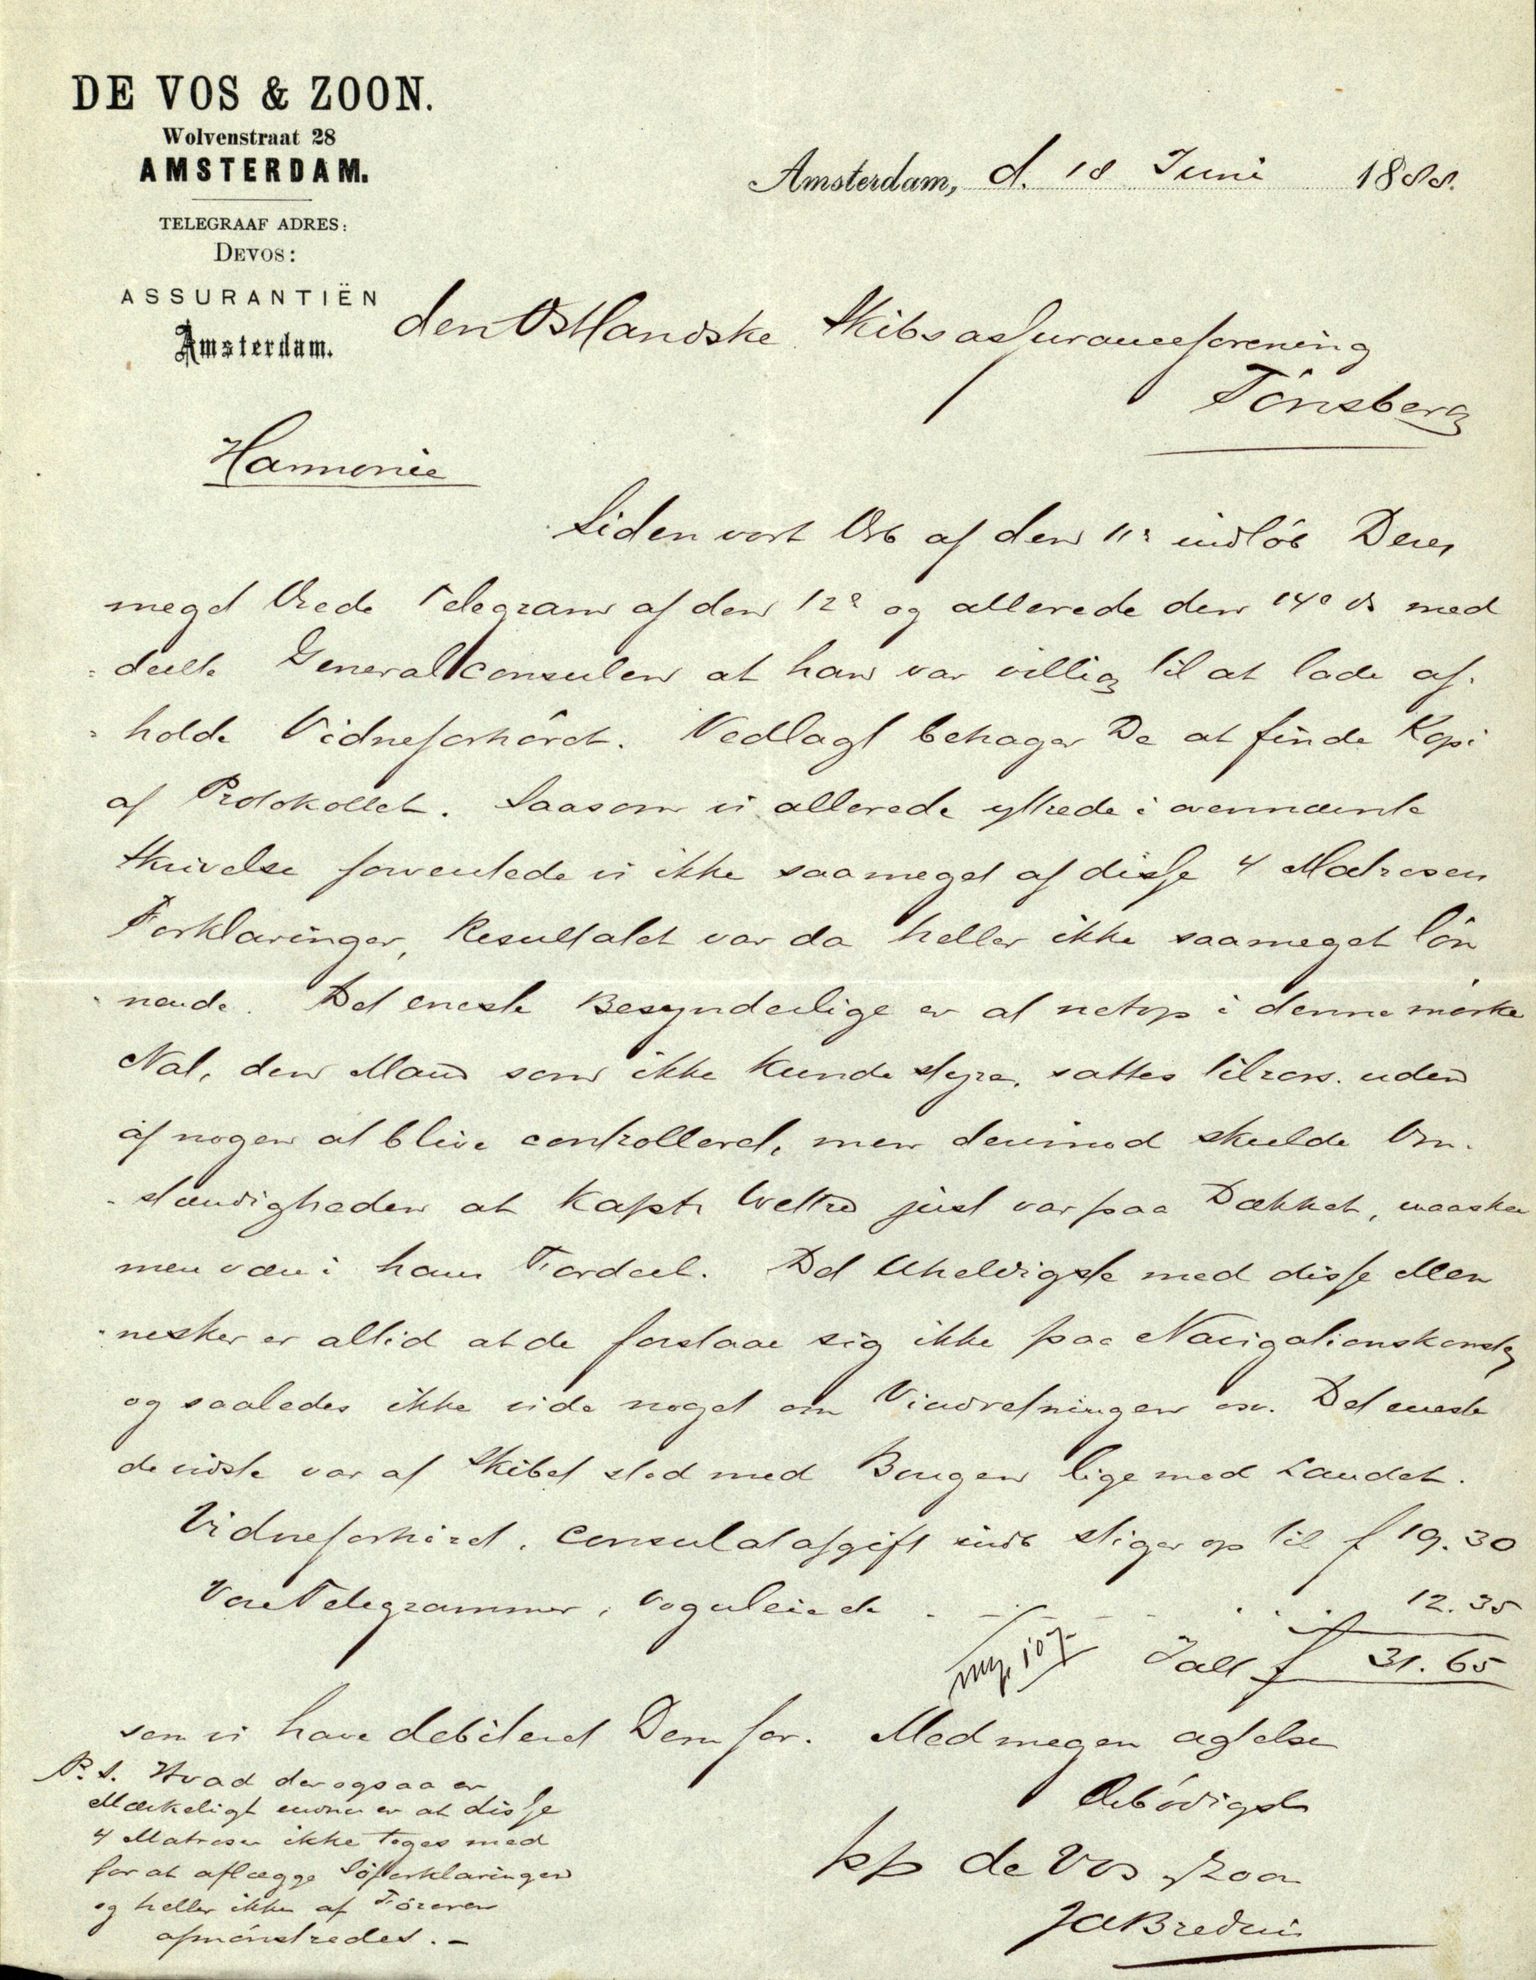 DE VOS & ZOON.
Wolvenstraat 28
AMSTERDAM.
TELEGRAAF ADRES:
DEVOS:
ASSURANTIËN
Amsterdam.
Amsterdam, d. 18 Juni 1888.
den Ostlandske Skibsassuranceforening
Tönsberg
Harmonie
Siden vort Örb af den 11e indlöb Deres
meget Ærede Telegram af den 12e og allerede den 14e ds med
deelte Generalconsulen at han var villig til at lade af-
holde Vidneforhöret. Vedlagt behager De at finde Kopi
af Protokollet. Saasom vi allerede yttrede i ovennævnte
Skrivelse forventede vi ikke saameget af disse 4 Matrosen
Forklaringer, Resultatet var da heller ikke saameget lön
nende. Det eneste Besynderlige er at netop i denne mörke
Nat, den Mand som ikke kunde styre, sattes tilrors. uden
af nogen at blive controlleret, men derimod skulde Om-
stændigheden at Kaptn just var paa Dækket, maaskee
men være i hans Fordeel. Det Uheldigste med disse Men
nesker er altid at de forstaae sig ikke paa Navigationskonsten
og saaledes ikke vide noget om Vindretningen osv. Det eneste
de vidste var at Skibet stod med Bougen lige mod Landet.
Vidneforhöret, Consulatafgift indb stiger op til f 19.30
Vore Telegrammer, Vognleie de 12.35
Ialt f 31.65
som vi have debiteret Dem for. Med megen agtelse
Ærbödigst
pp de Vos & Zoon
JABreduis
P.S. Hvad der ogsaa er
Mærkeligt endnu er at disse
4 Matroser ikke toges med
for at aflægge Söforklaringen
og heller ikke af Föreren
afmönstredes. —